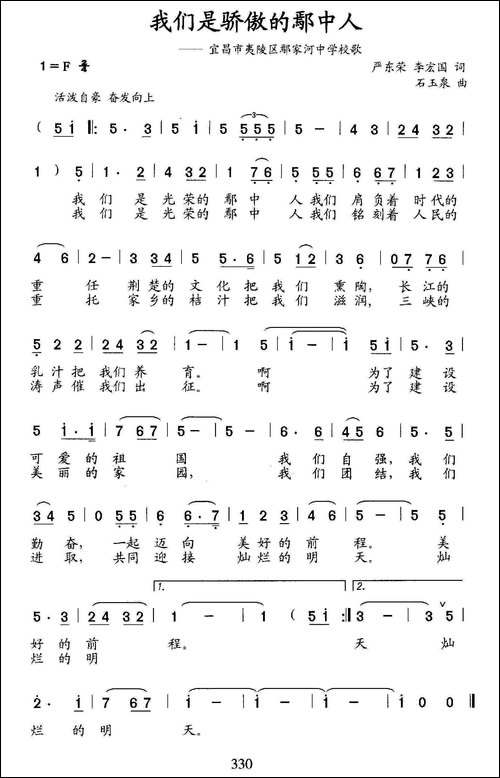 我们是骄傲的鄢中人
—— 宜昌市夷陵区鄢家河中学校歌
1=F 2/4
严东荣 李宏国 词
石玉泉 曲
活泼自豪 奋发向上
( 5 i ‖: 5 · 3 | 5 i | 5 555 | 5 – | 4 · 3 | 24 32 |
1 ) 5 | 1 · 2 | 4 32 | 1 76 | 5 55 | 6 67 | 1 23 |
我 们 是 光 荣的 鄢 中 人 我们 肩 负着 时 代的
我 们 是 光 荣的 鄢 中 人 我们 铭 刻着 人 民的
4 6 | 2 – | 3 34 | 5 · 5 | 5 12 | 3 · 6 | 07 76 |
重 任 荆 楚的 文 化 把 我们 熏 陶, 长 江的
重 托 家 乡的 桔 汁 把 我们 滋 润, 三 峡的
5 22 | 24 32 | 1 – | 1 5 | i – | i 5i | 5 · 3 |
乳 汁把 我们 养 育。 啊 为了 建 设
涛 声催 我们 出 征。 啊 为了 建 设
5 i · i | 7 67 | 5 – | 5 – | 6 · 6 | 4 6 | 5 · 5 |
可 爱 的 祖 国 我 们 自 强, 我 们
美 丽 的 家 园, 我 们 团 结, 我 们
34 5 | 0 55 | 5 6 | 6 · 7 | 1 23 | 4 6 | 5 – | 5 5 |
勤 奋, 一起 迈 向 美 好 的 前 程。 美
进 取, 共同 迎 接 灿 烂 的 明 天。 灿
1. 2.
5 · 3 | 24 32 | 1 – | 1 (5i :‖ 3 – | 3 35 |
好 的 前 程。 天 灿
烂 的 明
2 · i | 7 67 | i – | i – | i – | i 0 0 ‖
烂 的 明 天。
330